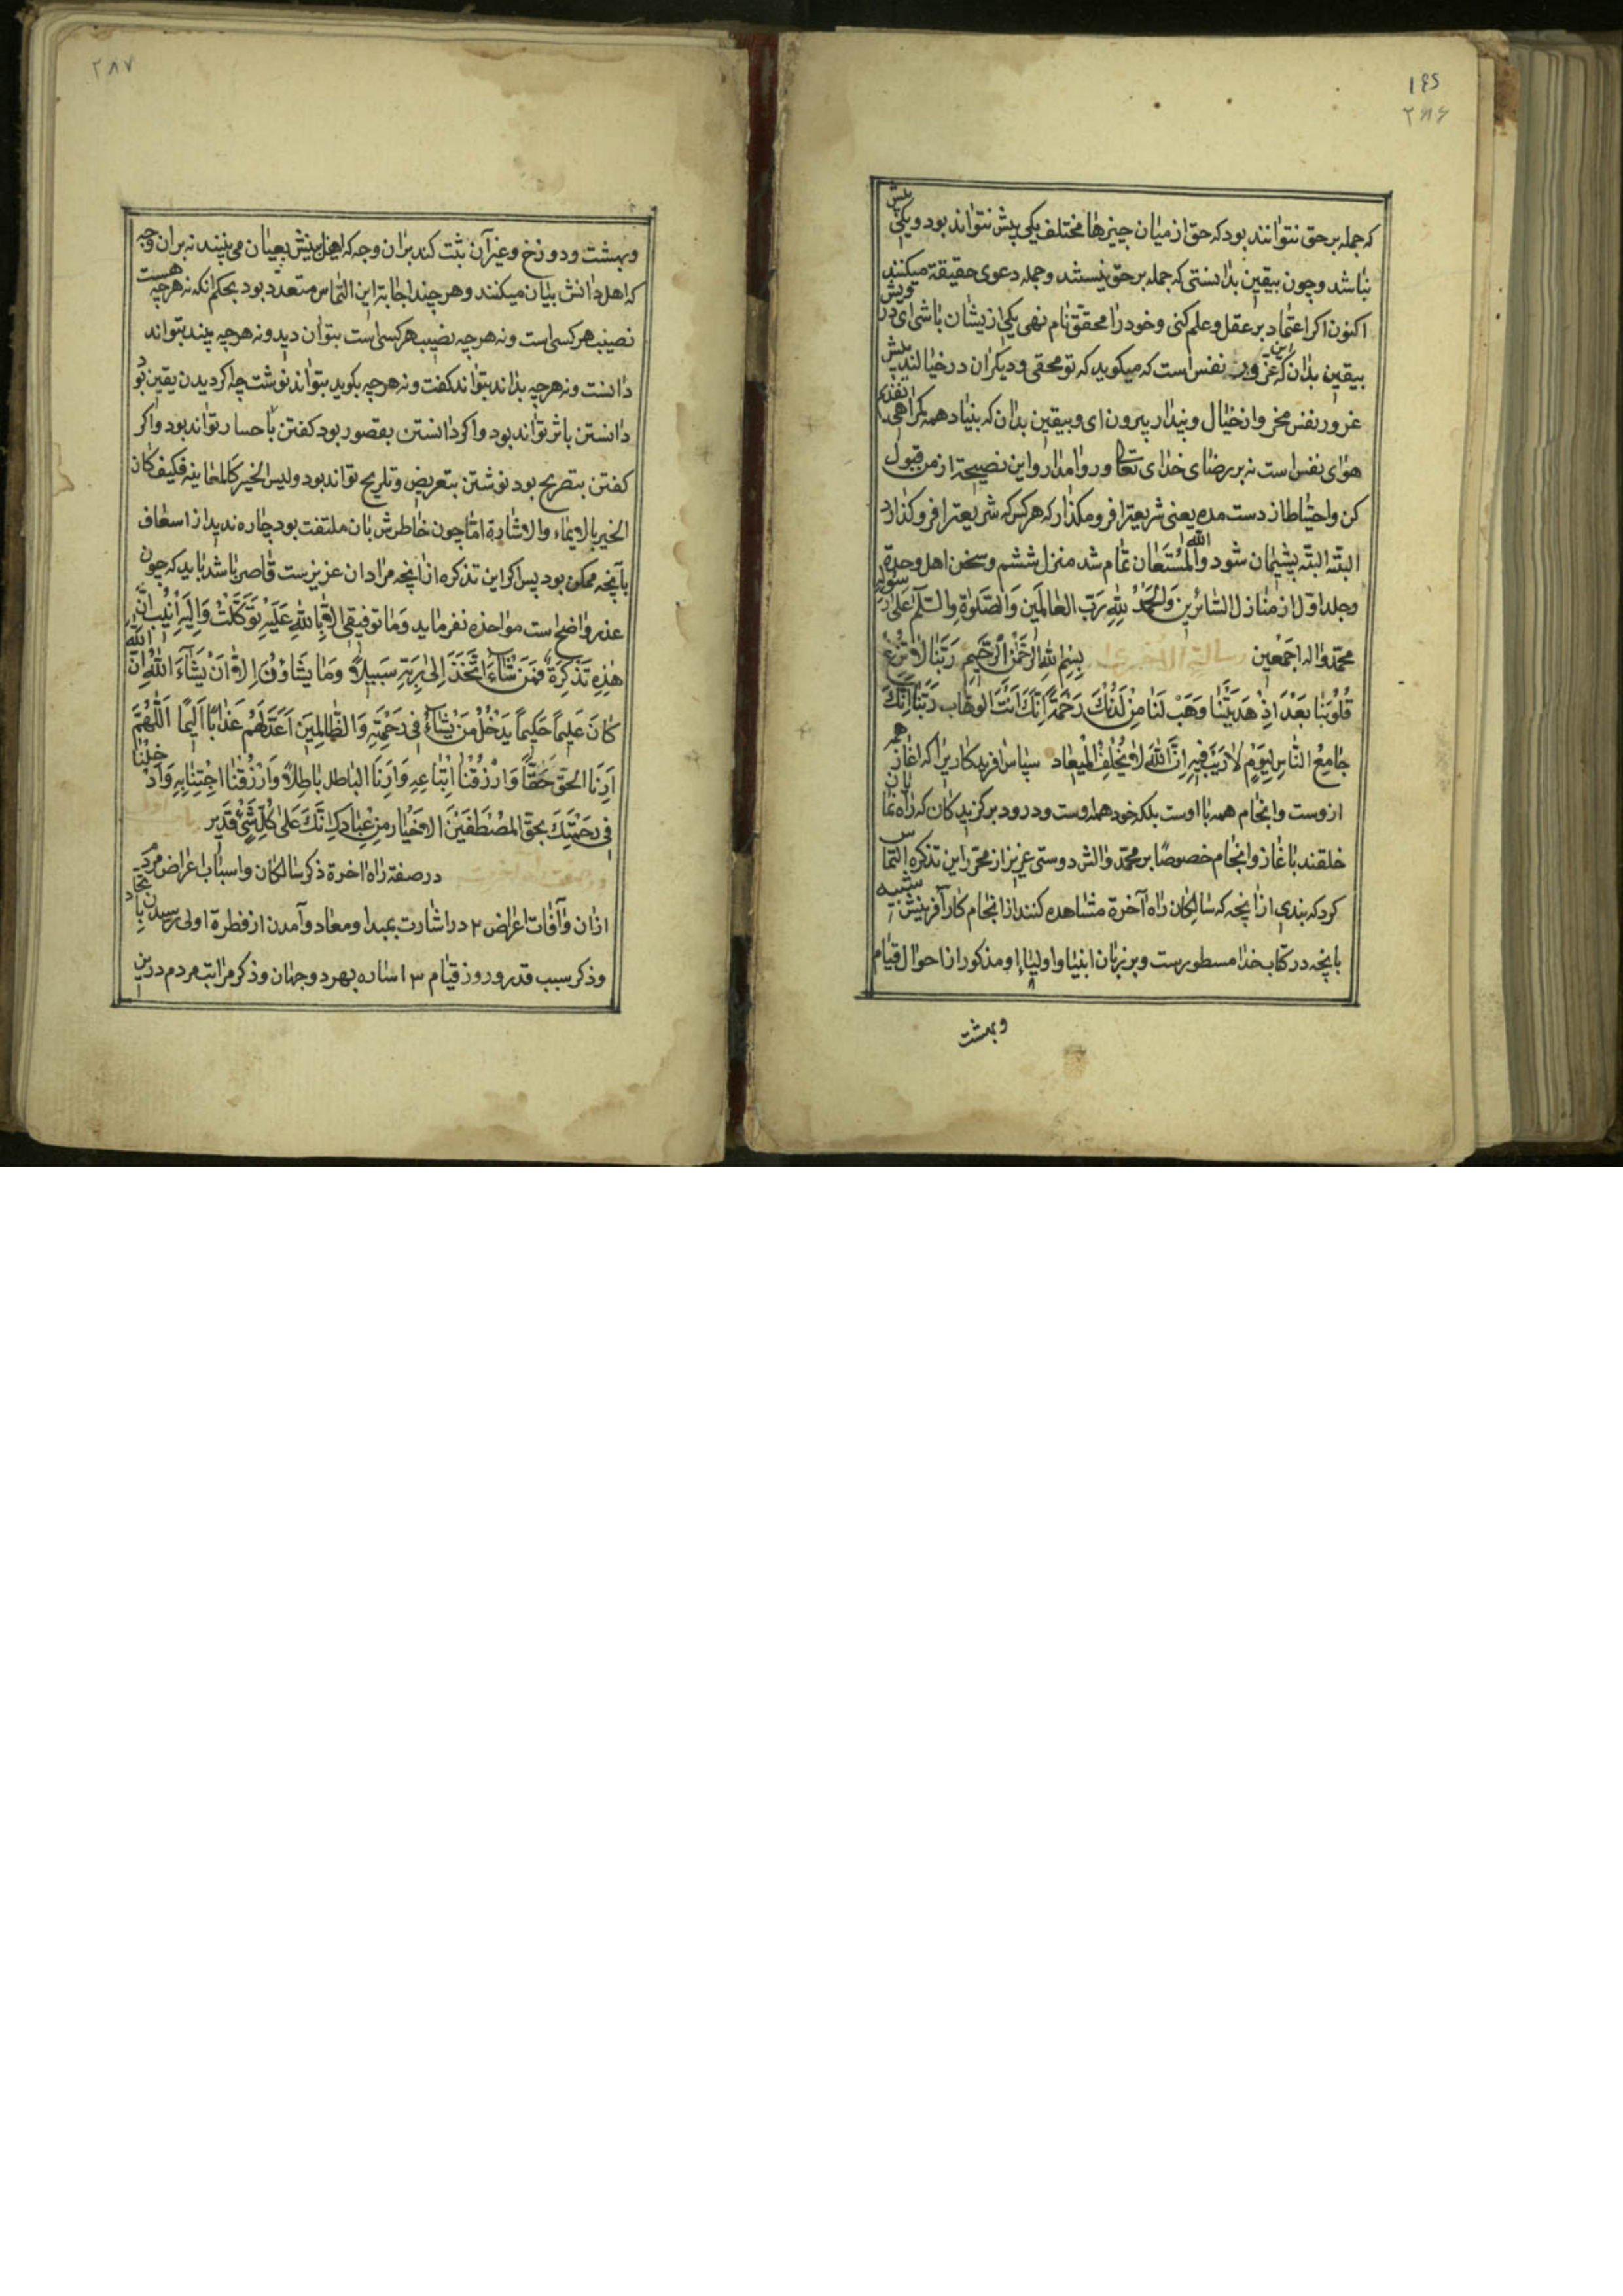 ١٤٥
٢٨۶
که جمله بر حق نتوانند بود که حق از میان چیزها مختلف یکی بیش نتواند بود و یکی بیش
نباشد و چون بیقین بدانستی که جمله بر حق نیستند و جمله دعوی حقیقة میکنند
اکنون اکر اعتماد بر عقل و علم کنی و خود را محقق نام نهی یکی ازیشان باشی ای درویش
بیقین بدان که این غرور نفس است که میکوید که تو محقی و دیکران در خیالند بیش
غرور نفس مخر و از خیال و پندار بیرون ای و بیقین بدان که بنیاد همه کمراهی
هوای نفس است نه بر رضای خدای تعالی و روا مدار و این نصیحة از من قبول
کن و احتیاط از دست مده یعنی شریعترا فرو مکذار که هر کس که شریعترا فرو کذارد
البته البته پشیمان شود والله المستعان تمام شد منزل ششم و سخن اهل وحدة
و جلد اول از منازل السائرین وَالحَمْدُ لِلّهِ رَبِّ العٰالَمین وَالصَّلوٰةِ والسّلٰم عَلیٰ رسوله
محمّد واله اجمعین بِسْمِ اللهِ الرَّحْمٰنِ الرَّحیمِ رَبَّنٰا لاٰ تُزِغْ
قُلُوبَنٰا بَعْدَ اِذْ هَدَیْتَنٰا وَهَبْ لَنٰا مِنْ لَدُنْكَ رَحْمَةً اِنَّكَ اَنْتَ الوَهّاب رَبَّنٰا اِنَّكَ
جٰامِعُ النّٰاسِ لِیَوْمٍ لٰا رَیْبَ فیهِ اِنَّ اللهَ لاٰ یُخْلِفُ الْمیعٰاد سپاس افریدکاریرا که اغاز همه
ازوست و انجام همه با اوست بلکه خود همه اوست و درود بر کزیدکان که راه نمایان
خلقند باغاز و انجام خصوصًا بر محمّد و الش دوستی عزیز از محرّر این تذکره التماس
کرد که نبذی از انچه که سالکان راه آخرة مشاهده کنند از انجام کار آفرینش شبیه
بانچه در کتاب خدا مسطورست و بر زبان انبیا و اولیا او مذکور از احوال قیام
و بهشت
٢٨٧
و بهشت و دوزخ و غیر آن ثبت کند بران وجه که اهل بینش بعیان می‌بینند نه بران وجه
که اهل دانش بیان میکنند و هر چند اجابة این التماس متعدد بود بحکم انکه نه هرچه هست
نصیب هر کسی است و نه هرچه نصیب هر کسی است بتوان دید و نه هرچه بیند بتواند
دانست و نه هرچه بداند بتواند کفت و نه هرچه بکوید بتواند نوشت چه اکر دیدن یقین بود
دانستن باثر تواند بود و اکر دانستن بقصور بود کفتن باحسار تواند بود و اکر
کفتن بتصریح بود نوشتن بتعریض و تلریح تواند بود ولیس الخبر کالمعاینه فکیف کان
الخبر بالایماء والاشارة امّا چون خاطرش بان ملتفت بود چاره ندید از اسعاف
بآنچه ممکن بود پس اکر این تذکره از انچه مراد ان عزیزست قاصر باشد باید که چون
عذر واضح است مواخذه نفرماید وَمٰا توفیقی الاّ بِاللهِ عَلَیْهِ تَوَکَّلْتُ وَاِلَیْهِ اُنیْبُ انَّ
هٰذِهِ تَذْکِرَةٌ فَمَنْ شٰاءَ اتَّخَذَ اِلیٰ رَبِّهِ سَبیلاً وَ مٰا یَشٰاؤُنَ اِلاّٰ اَنْ یَشٰآءَ اللهُ اِنَّ الله
کٰانَ عَلیماً حَکیماً یَدْخُلُ مَنْ یَشٰآءُ فی رَحْمَتِهِ وَالظّٰالِمینَ اَعَدَّ لَهُمْ عَذٰاباً اَلیمًا اَللّٰهُمَّ
اَرِنَا الحَقَّ حَقّاً وَارْزُقْنٰا اِتّبٰاعِهِ وَاَرِنَا البٰاطِلَ بٰاطِلاً وَارْزُقْنٰا اجْتِنٰابِهِ وَادْخِلْنٰا
فی رَحْمَتِكَ بحقّ المُصْطَفَیْنَ الاَخْیٰار مِنْ عِبٰادِكَ اِنَّكَ عَلیٰ کُلِّ شَیْءٍ قَدیر
در صفة راه اخرة ذکر سالکان و اسباب اعراض مردم
ازان و آفات اعراض ٢ در اشارت بمبدا و معاد و آمدن از فطرة اولی و رسیدن بانجا
و ذکر سبب قدر و روز قیام ٣ اشاره بهر دو جهان و ذکر مراتب مردم درین